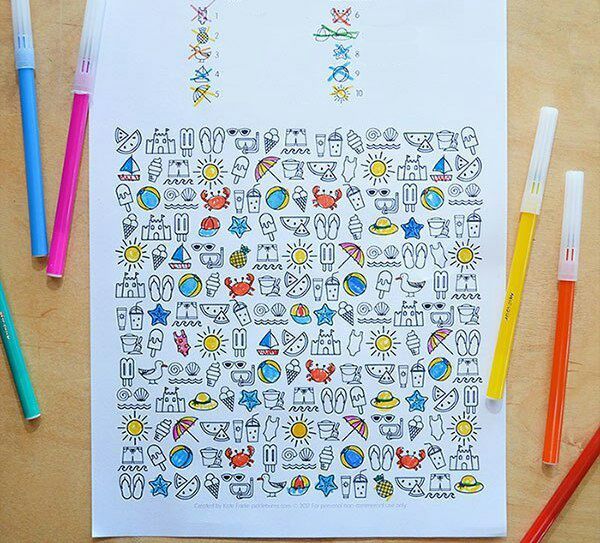 1 6
2
3 8
4 9
5 10
Created by Kate Fairlie picklebums.com © 2017 For personal non-commercial use only